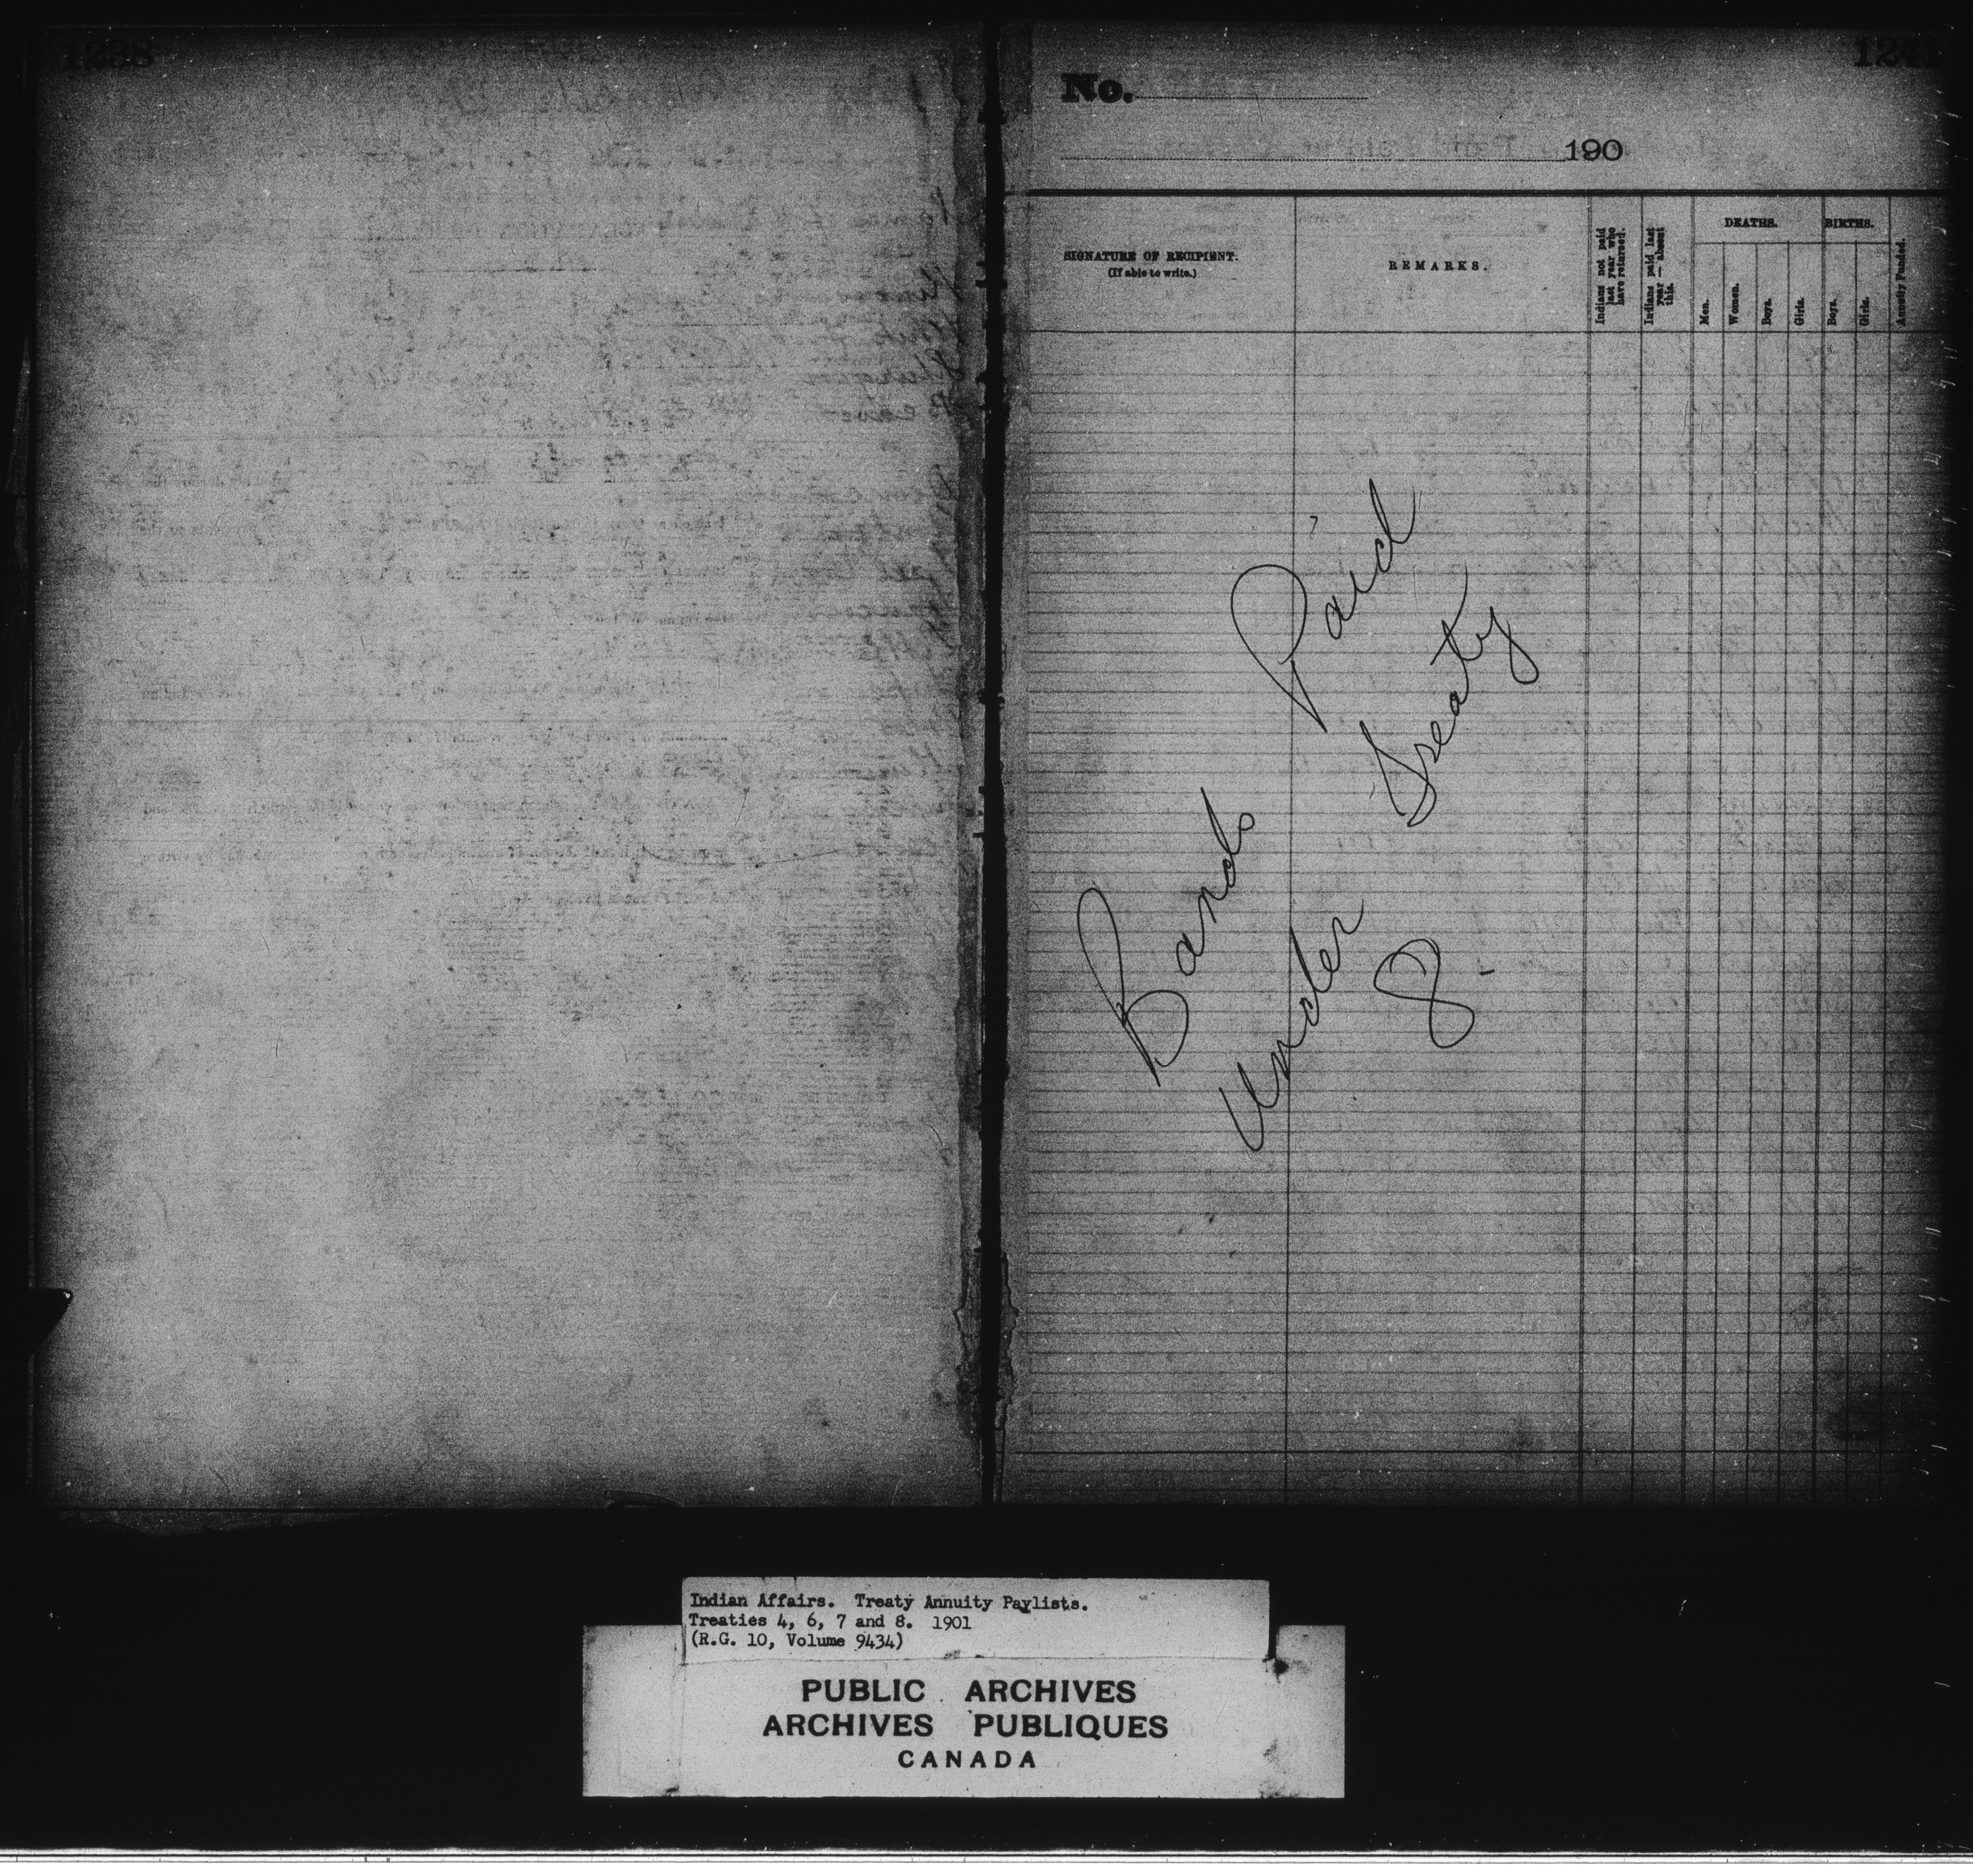 1238
No.
190
SIGNATURE OF RECIPIENT.
(If able to write.)
REMARKS.
Indians not paid last year who have returned.
Indians paid last year — absent this.
DEATHS.
Men.
Women.
Boys.
Girls.
BIRTHS.
Boys.
Girls.
Annuity Funded.
Bands Paid
Under Treaty
8.
Indian Affairs. Treaty Annuity Paylists.
Treaties 4, 6, 7 and 8. 1901
(R.G. 10, Volume 9434)
PUBLIC ARCHIVES
ARCHIVES PUBLIQUES
CANADA